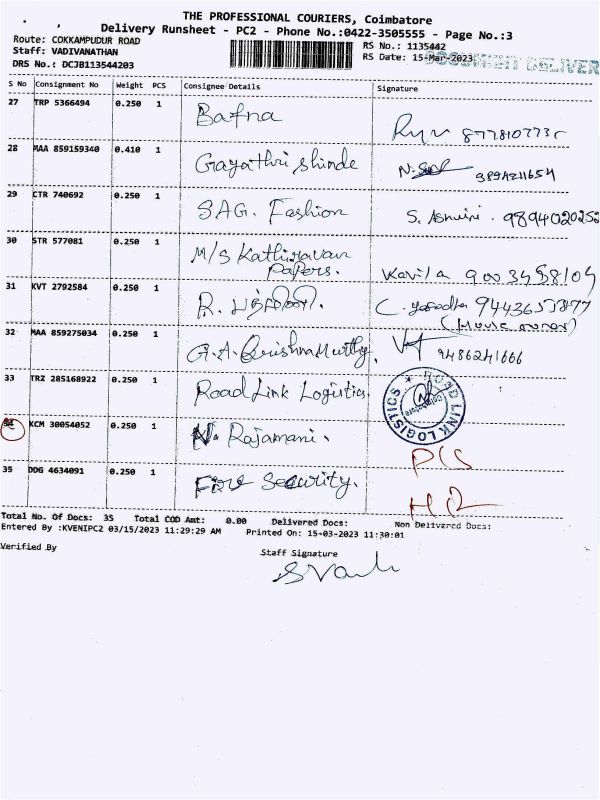 THE PROFESSIONAL COURIERS, Coimbatore
Delivery Runsheet - PC2 - Phone No.:0422-3505555 - Page No.:3
Route: COKKAMPUDUR ROAD RS No.: 1135442
Staff: VADIVANATHAN RS Date: 15-Mar-2023 DOCUMENT DELIVER
DRS No.: DCJB113544203
S No Consignment No Weight PCS Consignee Details Signature
27 TRP 5366494 0.250 1 Bafna
28 MAA 859159340 0.410 1 Gayathri Shinde
29 CTR 740692 0.250 1 SAG. Fashion S. Asmini. 9894020252
30 STR 577081 0.250 1 M/s Kathiravan Papers. Kavila
31 KVT 2792584 0.250 1 R.
(House owner)
32 MAA 859275034 0.250 1 G.A. Krishna Murthy. 9486241666
33 TRZ 285168922 0.250 1 Road Link Logistics. ROAD LINK LOGISTICS * Coimbatore
34 KCM 30054052 0.250 1 N. Rajamani.
35 DDG 4634091 0.250 1 Five Security.
Total No. Of Docs: 35 Total COD Amt: 0.00 Delivered Docs: Non Delivered Docs:
Entered By :KVENIPC2 03/15/2023 11:29:29 AM Printed On: 15-03-2023 11:30:01
Verified By Staff Signature